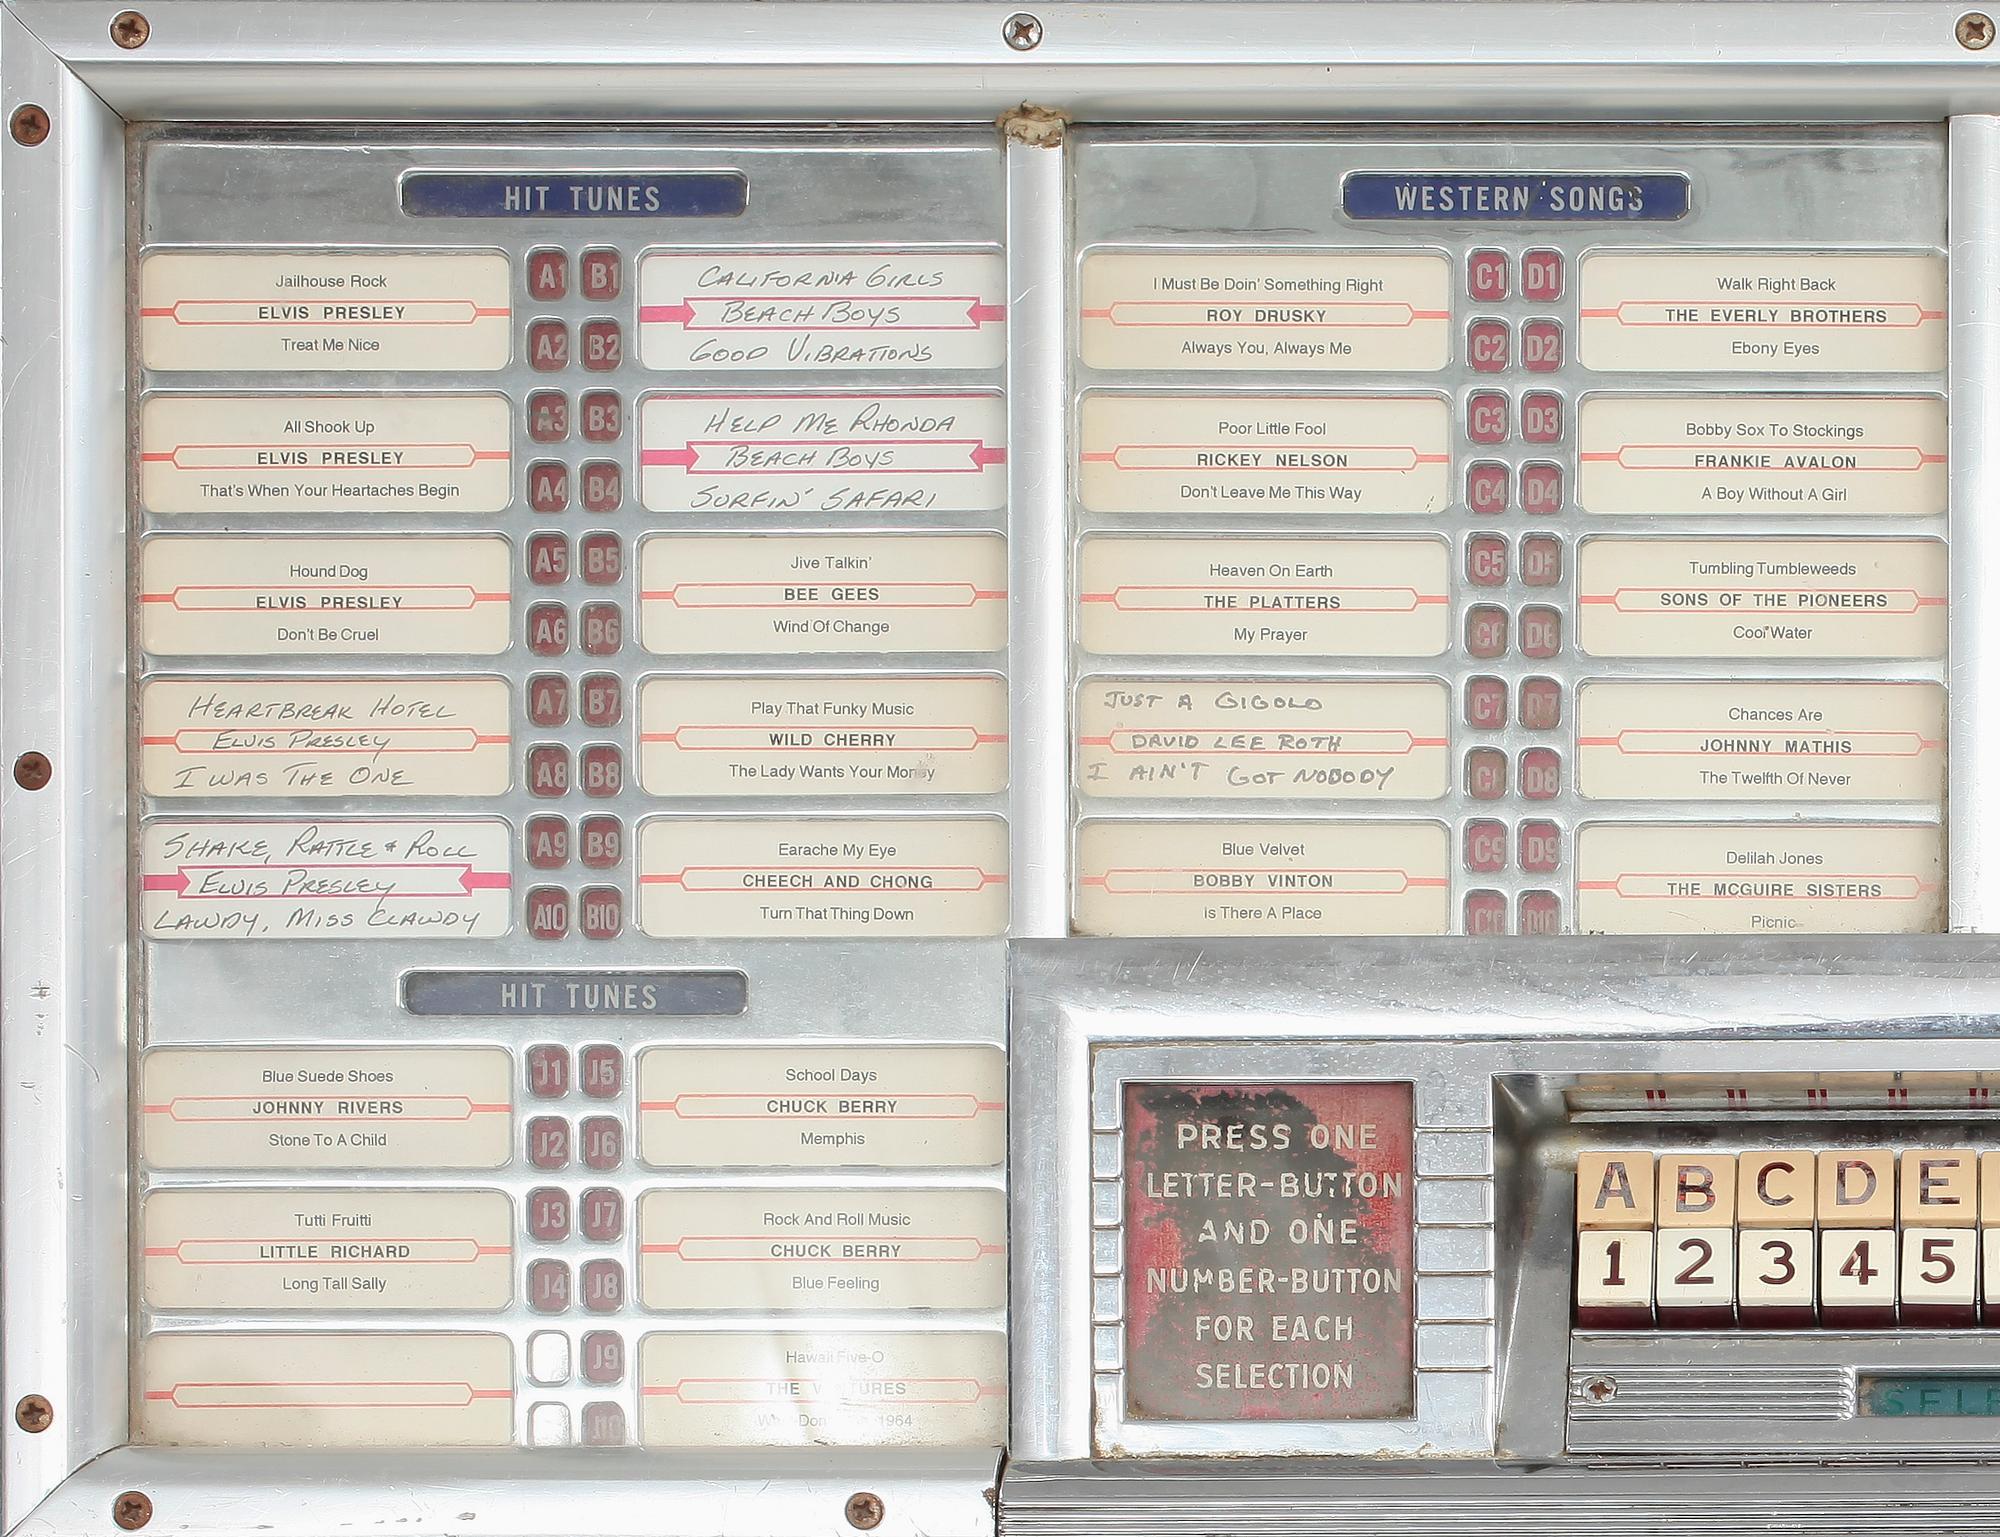 HIT TUNES
Jailhouse Rock
ELVIS PRESLEY
Treat Me Nice
A1 B1
A2 B2
CALIFORNIA GIRLS
BEACH BOYS
GOOD VIBRATIONS
All Shook Up
ELVIS PRESLEY
That's When Your Heartaches Begin
A3 B3
A4 B4
HELP ME RHONDA
BEACH BOYS
SURFIN' SAFARI
Hound Dog
ELVIS PRESLEY
Don't Be Cruel
A5 B5
A6 B6
Jive Talkin'
BEE GEES
Wind Of Change
HEARTBREAK HOTEL
ELVIS PRESLEY
I WAS THE ONE
A7 B7
A8 B8
Play That Funky Music
WILD CHERRY
The Lady Wants Your Money
SHAKE, RATTLE & ROLL
ELVIS PRESLEY
LAWDY, MISS CLAWDY
A9 B9
A10 B10
Earache My Eye
CHEECH AND CHONG
Turn That Thing Down
WESTERN SONGS
I Must Be Doin' Something Right
ROY DRUSKY
Always You, Always Me
C1 D1
C2 D2
Walk Right Back
THE EVERLY BROTHERS
Ebony Eyes
Poor Little Fool
RICKEY NELSON
Don't Leave Me This Way
C3 D3
C4 D4
Bobby Sox To Stockings
FRANKIE AVALON
A Boy Without A Girl
Heaven On Earth
THE PLATTERS
My Prayer
C5 D5
C6 D6
Tumbling Tumbleweeds
SONS OF THE PIONEERS
Cool Water
JUST A GIGOLO
DAVID LEE ROTH
I AIN'T GOT NOBODY
C7 D7
D8
Chances Are
JOHNNY MATHIS
The Twelfth Of Never
Blue Velvet
BOBBY VINTON
Is There A Place
C9 D9
C10 D10
Delilah Jones
THE MCGUIRE SISTERS
Picnic
HIT TUNES
Blue Suede Shoes
JOHNNY RIVERS
Stone To A Child
J1 J5
J2 J6
School Days
CHUCK BERRY
Memphis
Tutti Fruitti
LITTLE RICHARD
Long Tall Sally
J3 J7
J4 J8
Rock And Roll Music
CHUCK BERRY
Blue Feeling
J9
J10
Hawaii Five-O
THE
1964
PRESS ONE
LETTER-BUTTON
AND ONE
NUMBER-BUTTON
FOR EACH
SELECTION
A B C D E
1 2 3 4 5